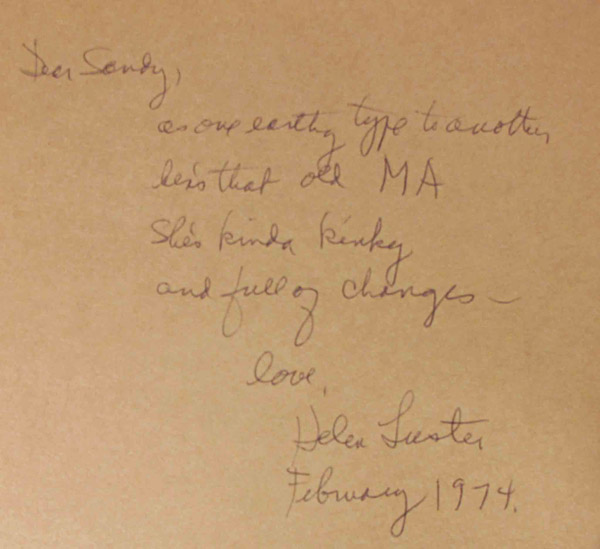 Dear Sandy,
as one earthy type to another
here's that old MA
She's kinda kinky
and full of changes –
love,
Helen Luster
February 1974.